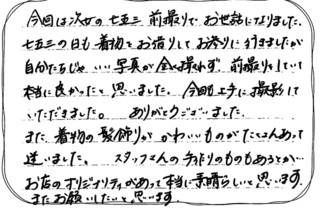 今回は次女の七五三前撮りでお世話になりました。
七五三の日も着物をお借りしてお参りに行きましたが
自分たちじゃいい写真が全く撮れず、前撮りをしていて
本当に良かったと思いました。今回も上手に撮影して
いただきました。ありがとうございました。
また着物の髪飾りがかわいいものがたくさんあって
迷いました。スタッフさんの手作りのものもあるとか…
お店のオリジナリティがあって本当に素晴らしいと思います
またお願いしたいと思います